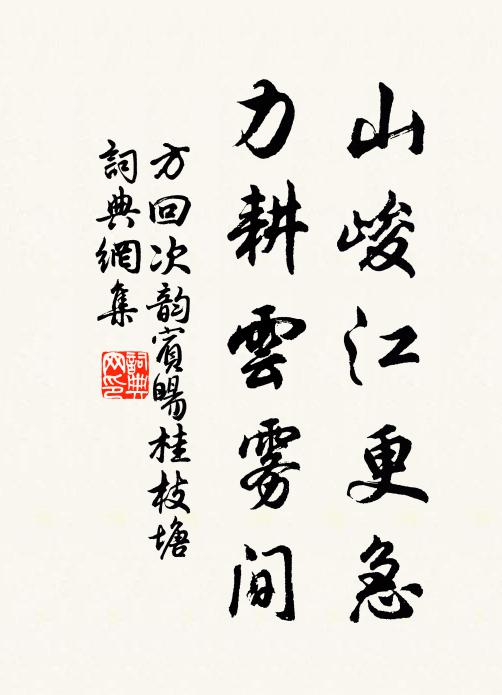 山峻江更急
力耕雲雾间
方回次韵賓暘桂枝塘
詞典網集
詞典网印